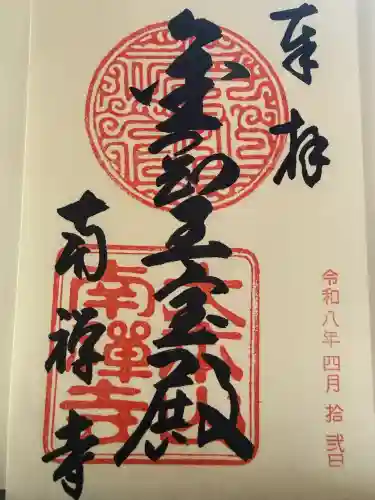 奉拝
金剛王宝殿
南禅寺
令和八年四月拾弐日
南禪寺